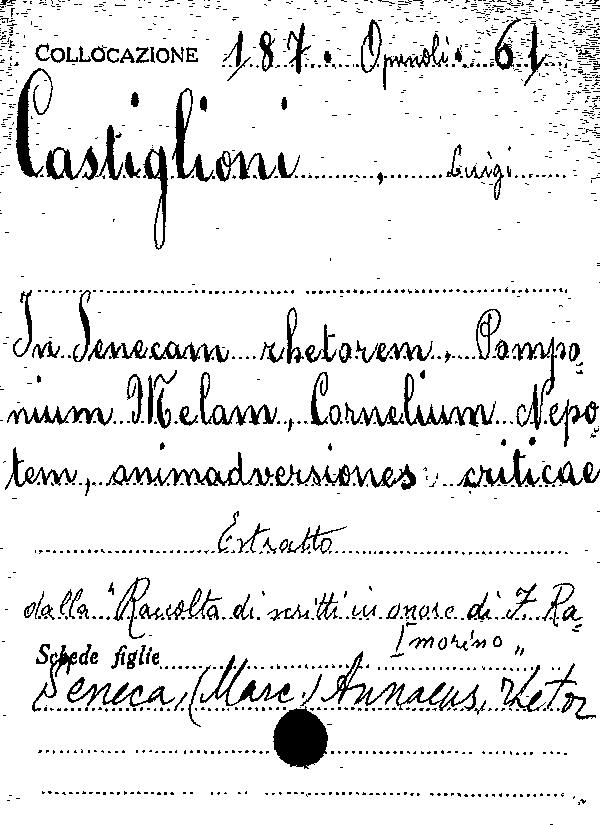 COLLOCAZIONE 187. Opuscoli. 61
Castiglioni, Luigi
In Senecam rhetorem, Pompo=
nium Melam, Cornelium Nepo=
tem, animadversiones criticae
Estratto
dalla "Raccolta di scritti in onore di F. Ra=
morino"
Schede figlie
Seneca, (Marc.) Annaeus, rhetor